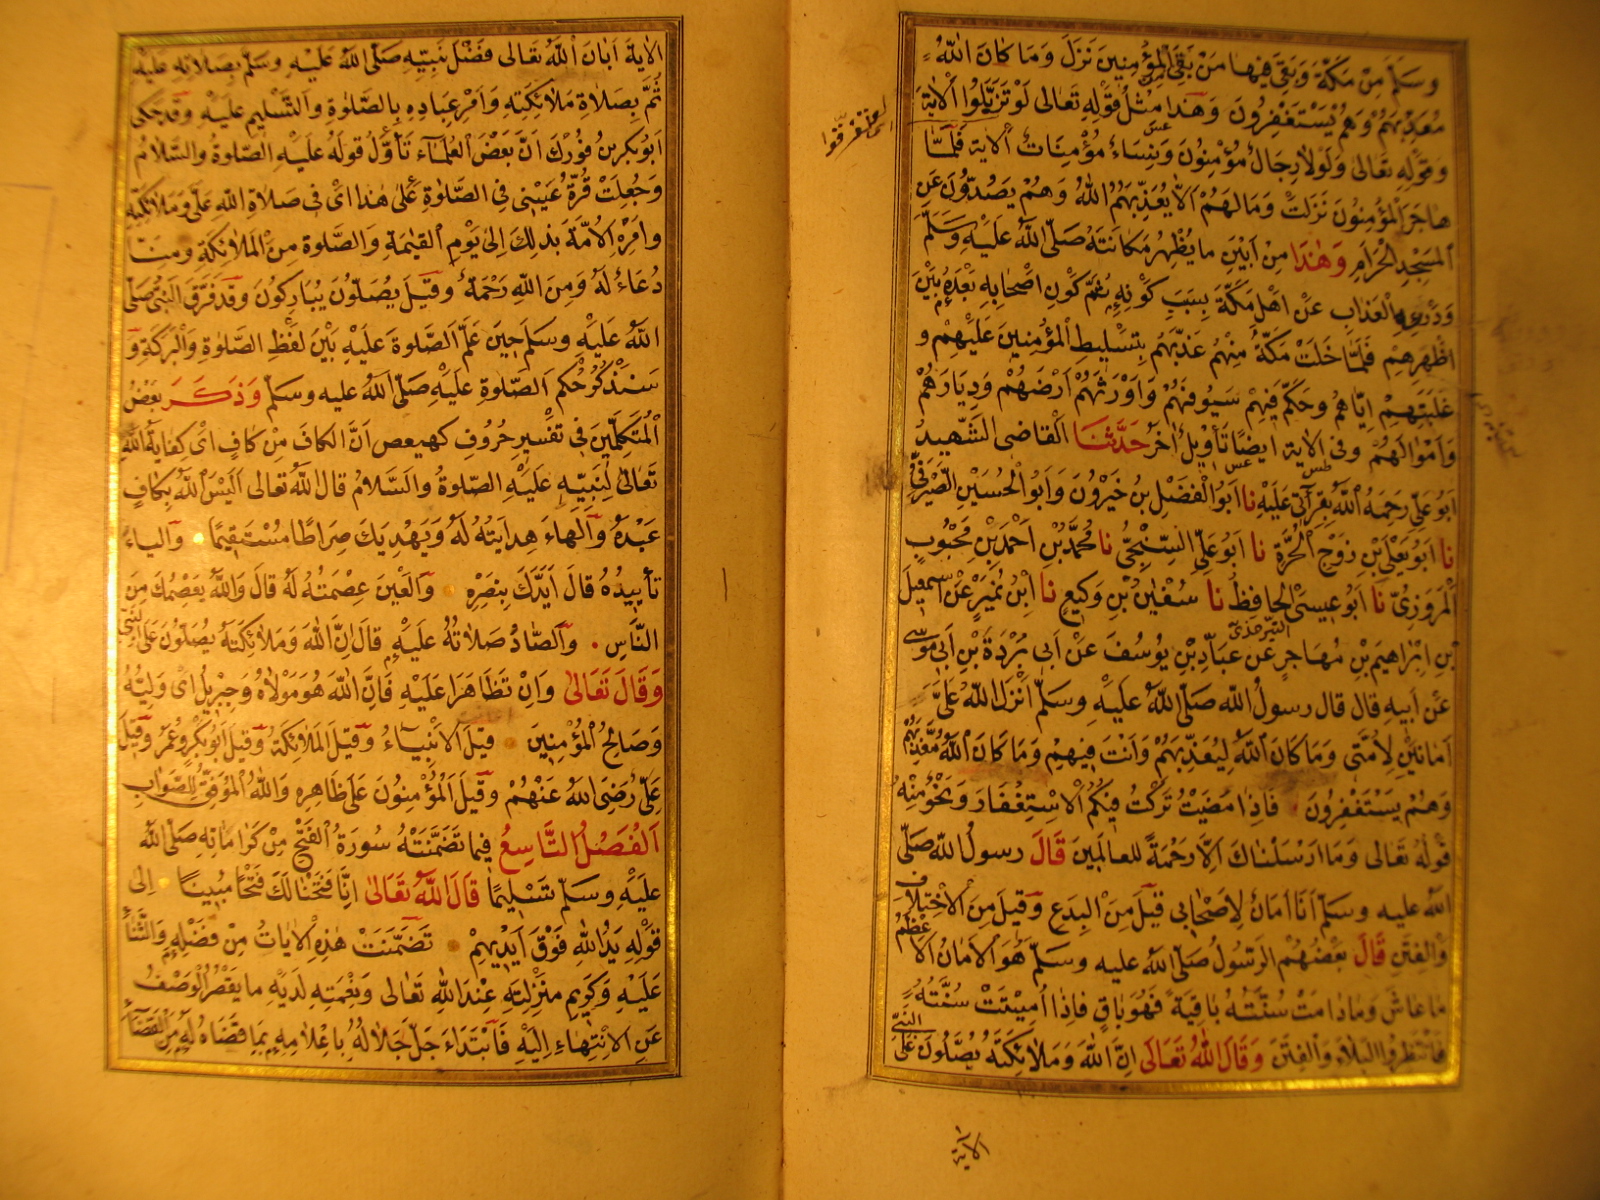 وسلم من مكة وبقى فيها من بقى المؤمنين نزل وما كان الله
معذبهم وهم يستغفرون وهذا مثل قوله تعالى لو تزيلوا الآية
وقوله تعالى ولولا رجال مؤمنون ونساء مؤمنات الآية فلما
هاجر المؤمنون نزلت وما لهم ألا يعذبهم الله وهم يصدون عن
المسجد الحرام وهذا من أبين ما يظهر مكانته صلى الله عليه وسلم
العذاب عن أهل مكة بسبب كونه ثم كون أصحابه بعده بين
أظهرهم فلما خلت مكة منهم عذبهم بتسليط المؤمنين عليهم و
غلبتهم إياهم وحكم فيهم سيوفهم وأورثهم أرضهم وديارهم
وأموالهم وفى الآية أيضا تأويل آخر حدثنا القاضى الشهيد
أبو على رحمه الله بقرآتى عليه نا أبو الفضل بن خيرون وأبو الحسين الصيرفى
نا أبو يعلى بن زوج الحرة نا أبو على السنجى نا محمد بن أحمد بن محبوب
المروزى نا أبو عيسى الحافظ نا سفين بن وكيع نا ابن نمير عن اسمعيل
بن ابراهيم بن مهاجر عن عباد بن يوسف عن أبى بردة بن أبى موسى
عن أبيه قال قال رسول الله صلى الله عليه وسلم أنزل الله على
أمانين لأمتى وما كان الله ليعذبهم وأنت فيهم وما كان الله معذبهم
وهم يستغفرون فإذا مضيت تركت فيكم الاستغفار ونحو منه
قوله تعالى وما أرسلناك إلا رحمة للعالمين قال رسول الله صلى
الله عليه وسلم أنا أمان لأصحابى قيل من البدع وقيل من الاختلاف
والفتن قال بعضهم الرسول صلى الله عليه وسلم هو الأمان الأعظم
ما عاش وما دامت سنته باقية فهو باق فإذا أميتت سنته
فانتظروا البلاء والفتن وقال الله تعالى إن الله وملائكته يصلون على النبى
الآية
الآية أبان الله تعالى فضل نبيه صلى الله عليه وسلم بصلاته عليه
ثم بصلاة ملائكته وأمر عباده بالصلوة والتسليم عليه وقد حكى
أبو بكر بن فورك أن بعض العلماء تأول قوله عليه الصلوة والسلام
وجعلت قرة عينى فى الصلوة على هذا أى فى صلاة الله على وملائكته
وأمره الأمة بذلك إلى يوم القيمة والصلوة من الملائكة ومنا
دعاء له ومن الله رحمة وقيل يصلون يباركون وقد فرق النبى صلى
الله عليه وسلم حين علم الصلوة عليه بين لفظ الصلوة والبركة و
سنذكر حكم الصلوة عليه صلى الله عليه وسلم وذكر بعض
المتكلمين فى تفسير حروف كهيعص أن الكاف من كاف أى كفاية الله
تعالى لنبيه عليه الصلوة والسلام قال الله تعالى أليس الله بكاف
عبده والهاء هدايته له ويهديك صراطا مستقيما والياء
تأييده قال أيدك بنصره والعين عصمته له قال والله يعصمك من
الناس والصاد صلاته عليه قال إن الله وملائكته يصلون على النبى
وقال تعالى وإن تظاهرا عليه فإن الله هو مولاه وجبريل أى وليه
وصالح المؤمنين قيل الأنبياء وقيل الملائكة وقيل أبو بكر وعمر وقيل
على رضى الله عنهم وقيل المؤمنون على ظاهره والله الموفق للصواب
الفصل التاسع فيما تضمنته سورة الفتح من كراماته صلى الله
عليه وسلم تسليما قال الله تعالى إنا فتحنا لك فتحا مبينا إلى
قوله يد الله فوق أيديهم تضمنت هذه الآيات من فضله والثناء
عليه وكريم منزلته عند الله تعالى ونعمته لديه ما يقصر الوصف
عن الانتهاء إليه فابتداء جل جلاله بإعلامه بما قضاه له من القضاء